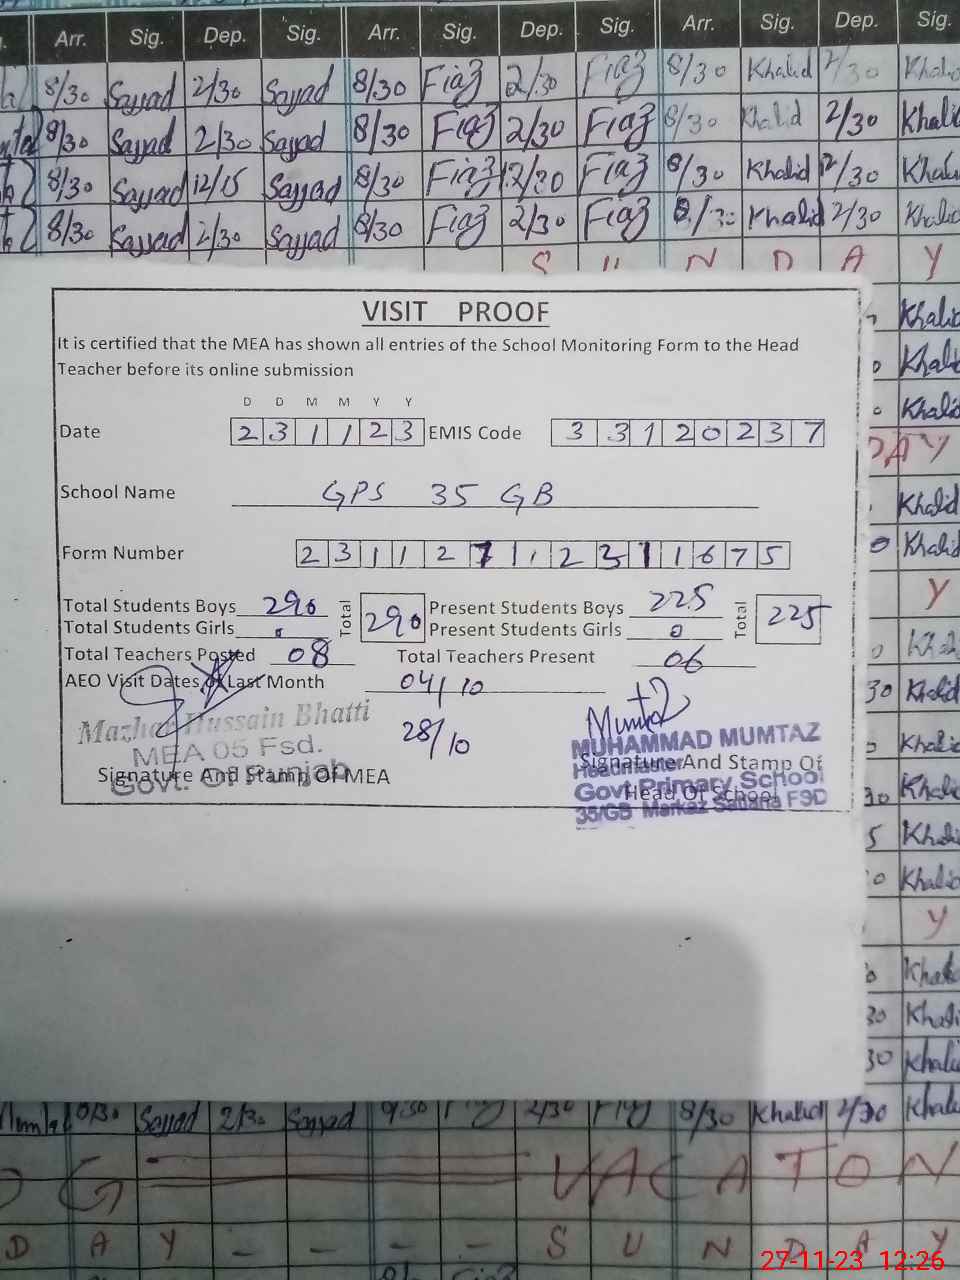 Arr. Sig. Dep. Sig. Arr. Sig. Dep. Sig. Arr. Sig. Dep. Sig.
8/30 Sayyad 2/30 Sayyad 8/30 Fiaz 2/30 Fiaz 8/30 Khalid 2/30 Khalid
8/30 Sayyad 2/30 Sayyad 8/30 Fiaz 2/30 Fiaz 8/30 Khalid 2/30 Khalid
8/30 Sayyad 12/15 Sayyad 8/30 Fiaz 12/30 Fiaz 8/30 Khalid 12/30 Khalid
8/30 Sayyad 2/30 Sayyad 8/30 Fiaz 2/30 Fiaz 8/30 Khalid 2/30 Khalid
S U N D A Y
VISIT PROOF
It is certified that the MEA has shown all entries of the School Monitoring Form to the Head
Teacher before its online submission
D D M M Y Y
Date 2 3 1 1 2 3 EMIS Code 3 3 1 2 0 2 3 7
School Name GPS 35 GB
Form Number 2 3 1 1 2 7 1 1 2 3 1 1 6 7 5
Total Students Boys 290 Total 290 Present Students Boys 225 Total 225
Total Students Girls 0 Present Students Girls 0
Total Teachers Posted 08 Total Teachers Present 06
AEO Visit Dates of Last Month 04/10
28/10
Mazhar Hussain Bhatti
MEA 05 Fsd.
Govt. Of Punjab
Signature And Stamp Of MEA
Mumtaz
MUHAMMAD MUMTAZ
Headmaster
Govt Primary School
35/GB Markaz Satiana FSD
Signature And Stamp Of
Head Of School
Khalid
Khalid
Khalid
DAY
Khalid
Khalid
Y
Khalid
30 Khalid
Khalid
30 Khalid
5 Khalid
0 Khalid
Y
Khalid
30 Khalid
30 Khalid
Sayyad 2/30 Sayyad 2/30 8/30 Khalid 2/30 Khalid
VACATON
D A Y - - - - S U N D A Y
27-11-23 12:26